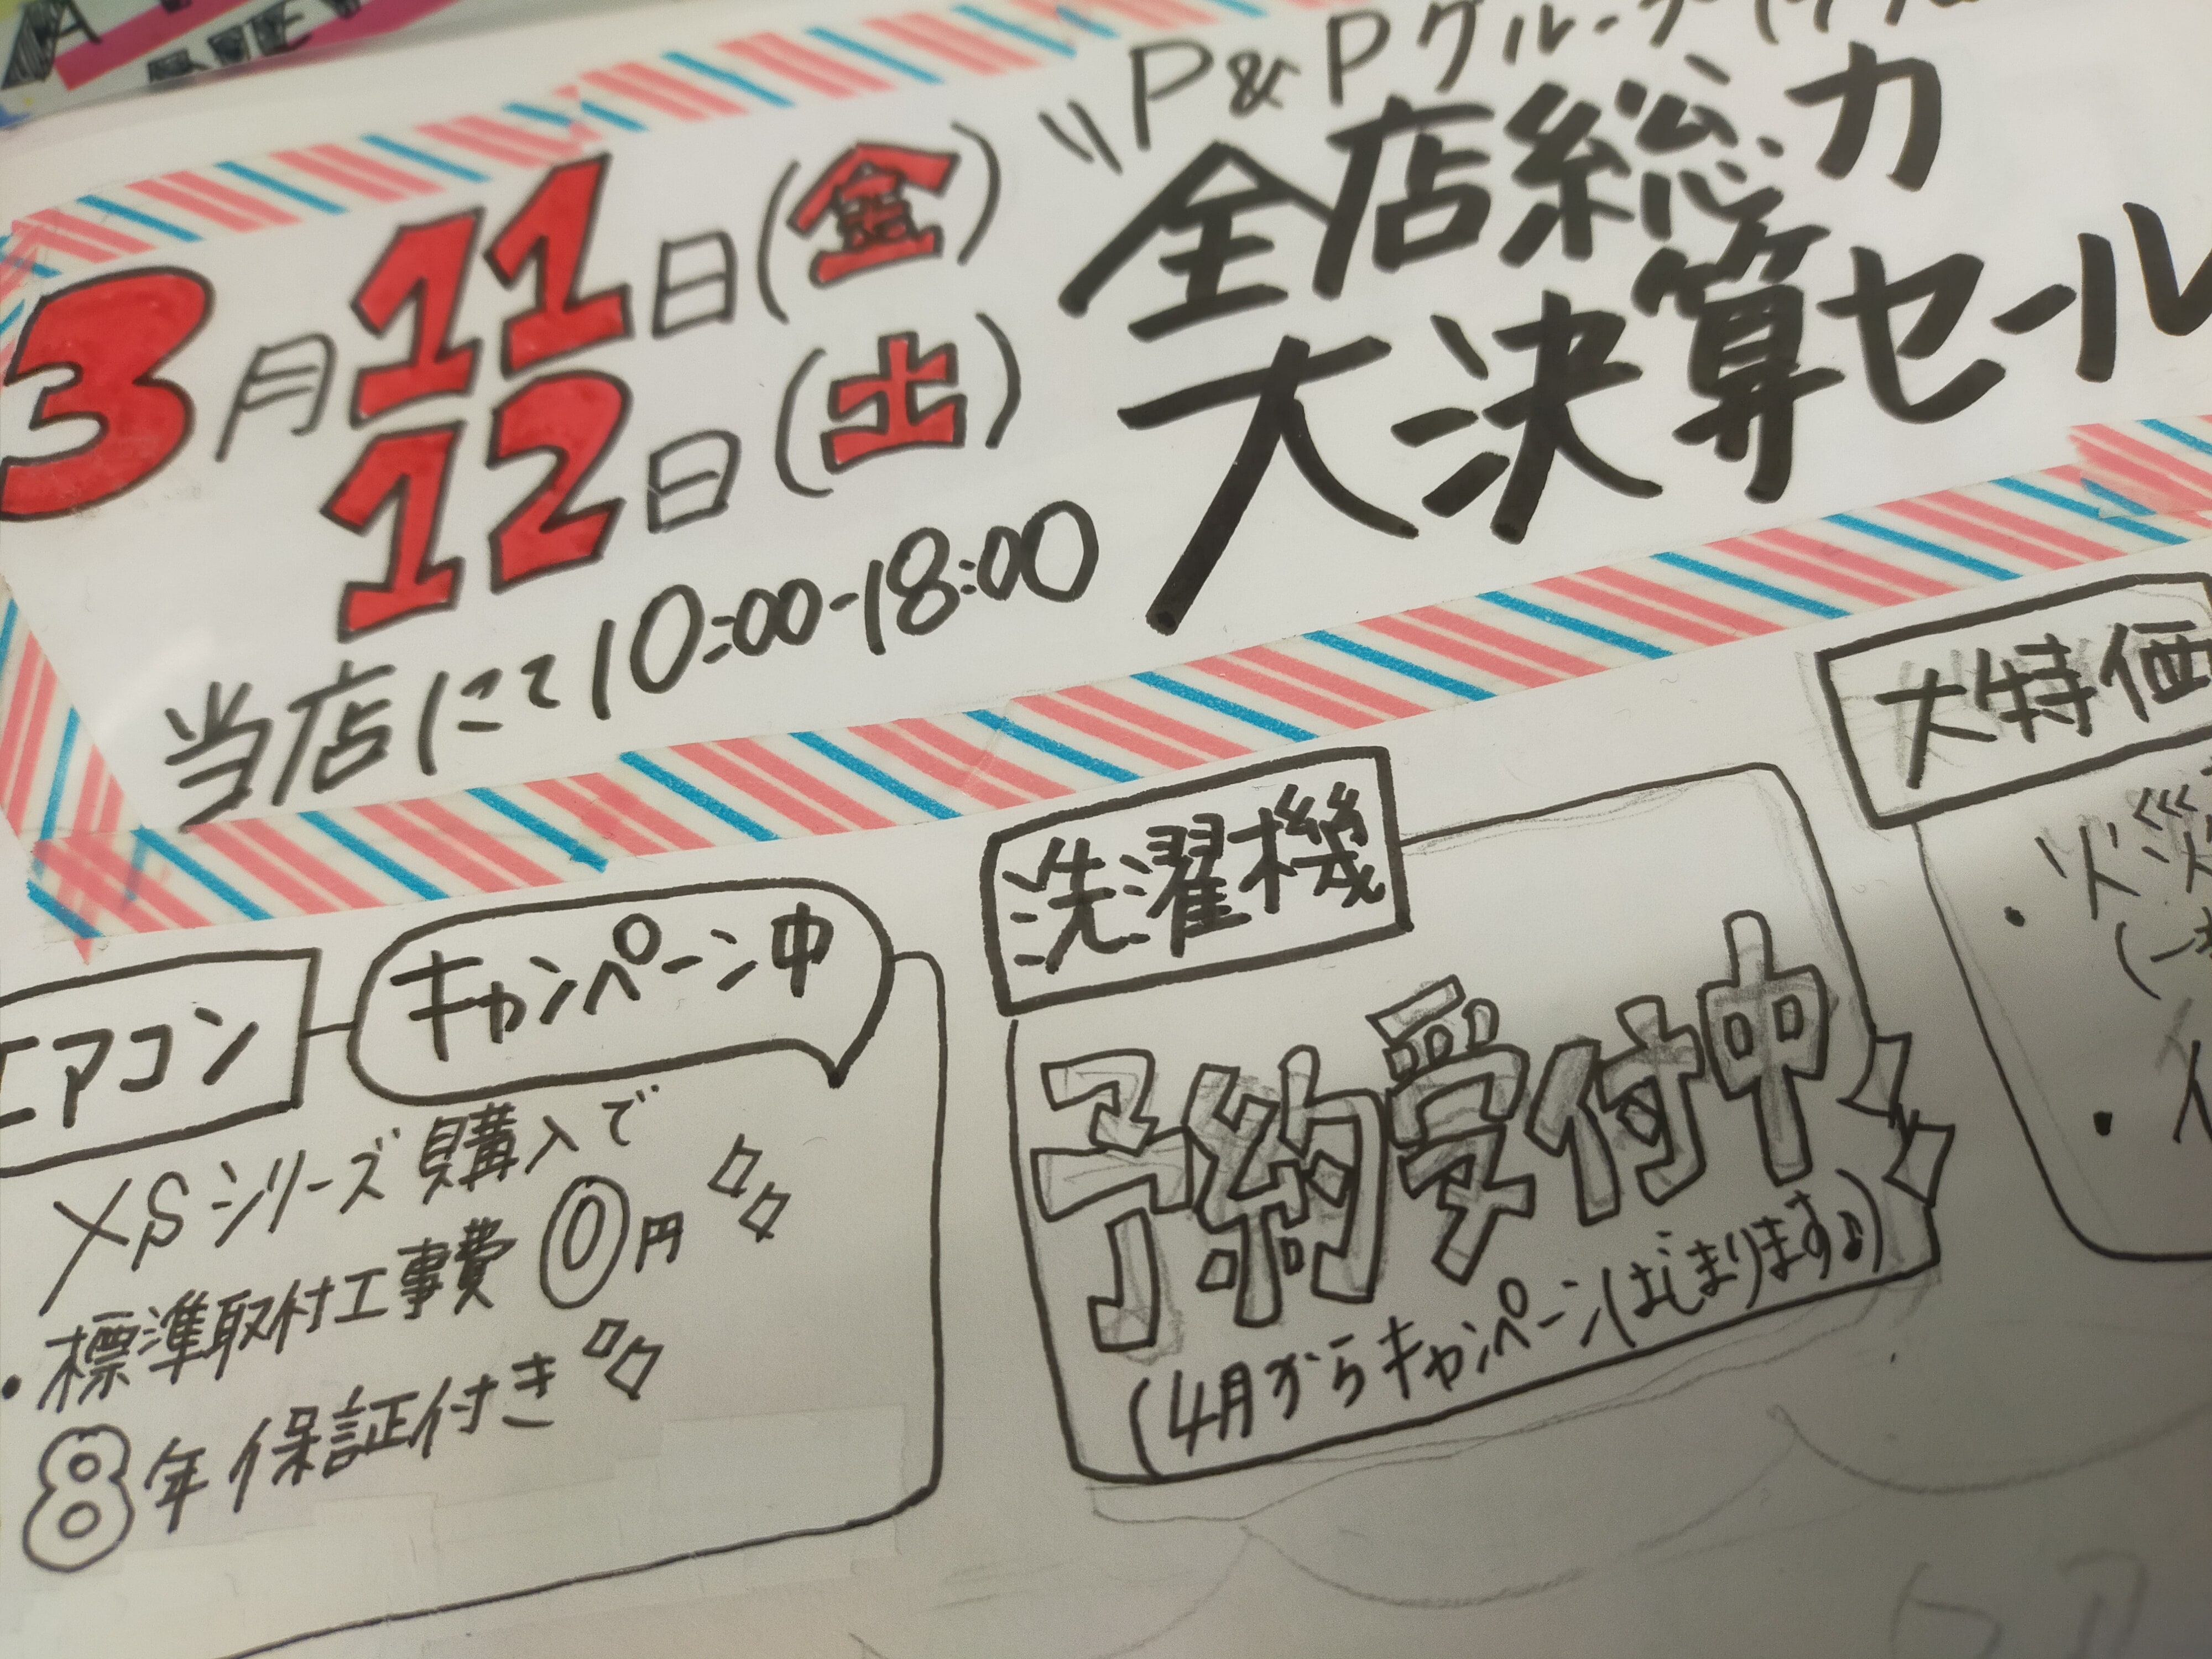 P&Pグループ
3月11日(金)
12日(土)
全店総力
大決算セール
当店にて10:00-18:00
エアコン
キャンペーン中
XSシリーズ購入で
・標準取付工事費0円
8年保証付き
洗濯機
予約受付中
(4月からキャンペーンはじまります♪)
大特価